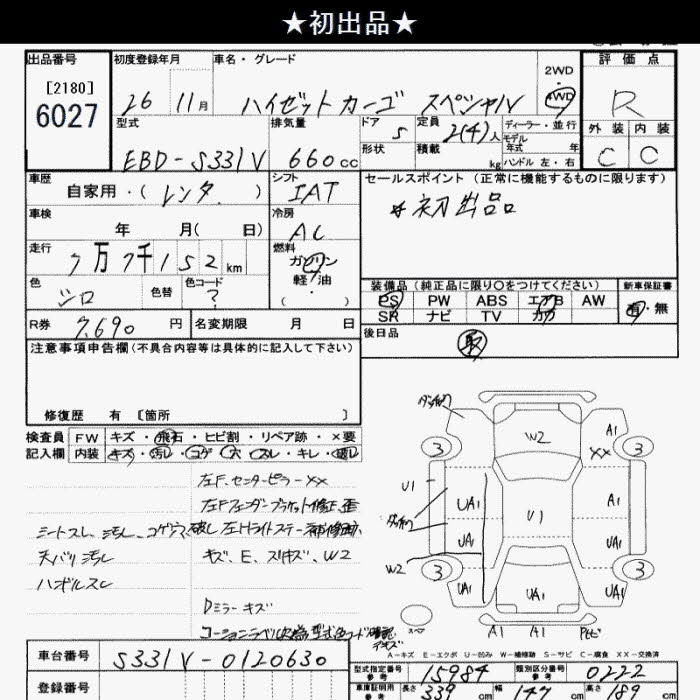 ★初出品★
出品番号 初度登録年月 車名・グレード 2WD 評価点
[2180]
6027 26 11月 ハイゼットカーゴ スペシャル 4WD R
型式 排気量 ドア 定員 ディーラー・並行 外装 内装
EBD-S331V 660cc 5 2(4)人 モデル年式 年 C C
形状 積載 kg ハンドル 左・右
車歴 シフト セールスポイント(正常に機能するものに限ります)
自家用・(レンタ) IAT ★初出品
車検 冷房
年 月(日) AC
走行 燃料
7万7千152km ガソリン
軽油
色 色替 色コード 装備品(純正品に限り○をつけてください) 新車保証書
シロ ? PS PW ABS エアB AW 有・無
SR ナビ TV カワ
R券 7,690円 名変期限 月 日 後日品
取
注意事項申告欄(不具合内容等は具体的に記入して下さい)
修復歴 有 [箇所 ]
検査員 FW キズ・飛石・ヒビ割・リペア跡・×要
記入欄 内装 キズ・汚レ・コゲ・穴・スレ・キレ・破レ
左F,センターピラーXX
左Fフェンダーブラケット修正、歪
シートスレ、汚レ、コゲ穴、破レ 左Hライトステー補修跡、
天バリ汚レ キズ、E、スリキズ、W2
ハンドルスレ
Dミラーキズ
W2 A1
XX
3 3
U1 UA1 U1 A1
UA1 UA1
W2
3 3
UA1 UA1 UA1
スペア A1 A1
A-キズ E-エクボ U-凹み W-補修跡 S-サビ C-腐食 XX-交換済
車台番号 S331V-0120630
型式指定番号 参考 15984 類別区分番号 参考 0222
登録番号 車庫証明用 参考 長さ 339 cm 幅 147 cm 高さ 189 cm